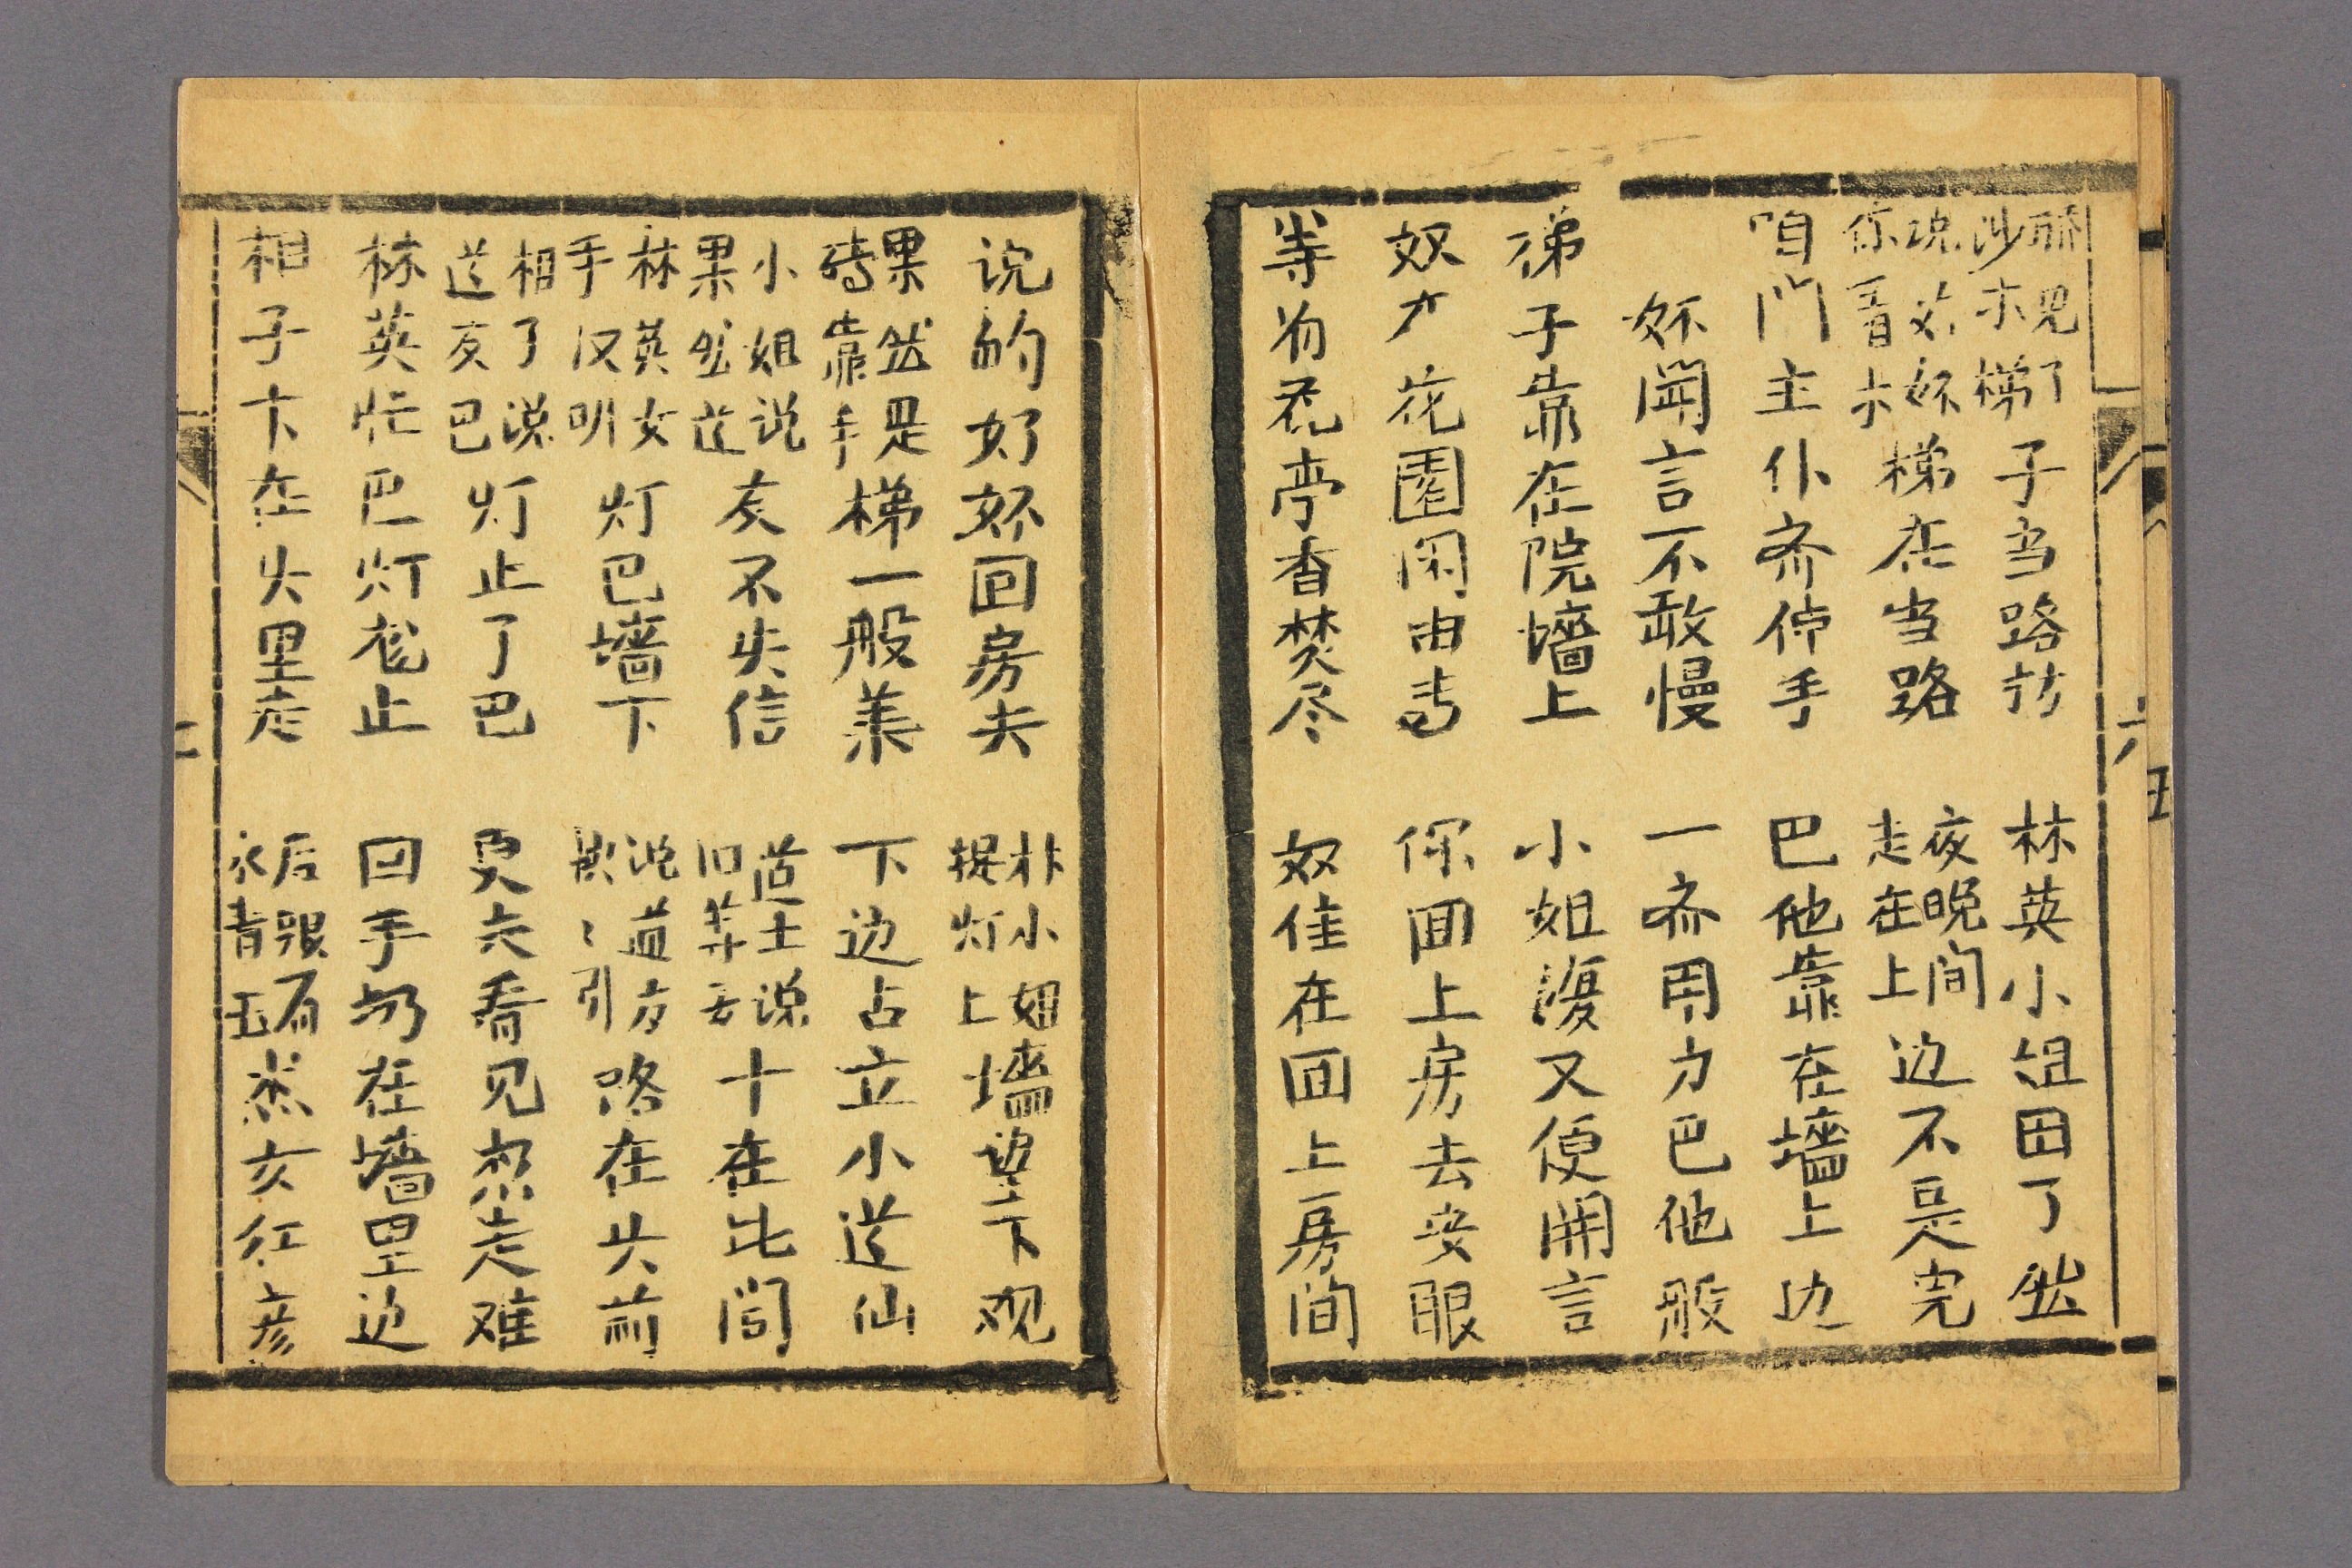 见了沙木梯子当路 林英小姐田了
说 你 木梯在当路 夜晚间走在上边不是完
咱门主仆齐伸手 巴他靠在墙上边
妚闻言不敢慢 一齐用力巴他般
梯子靠在院墙上 小姐復又便開言
奴才花園闲由 你回上房去安眼
等为花亭香焚尽 奴佳在回上房间
说的好妚回房去 朴小姐提灯上墙望下观
果然是砖靠手梯一般 下边占立小道仙
小姐说果然道友不失信 道士说旧 十在比間
林英女手仅明灯巴墙下 说道 引路在头前
相了说道友巴灯止了巴 更夫看见 走难
林英忙巴灯 止 回手 在墙里边
相子卞在头里走 后跟 衣青玉 女红彦
六
五